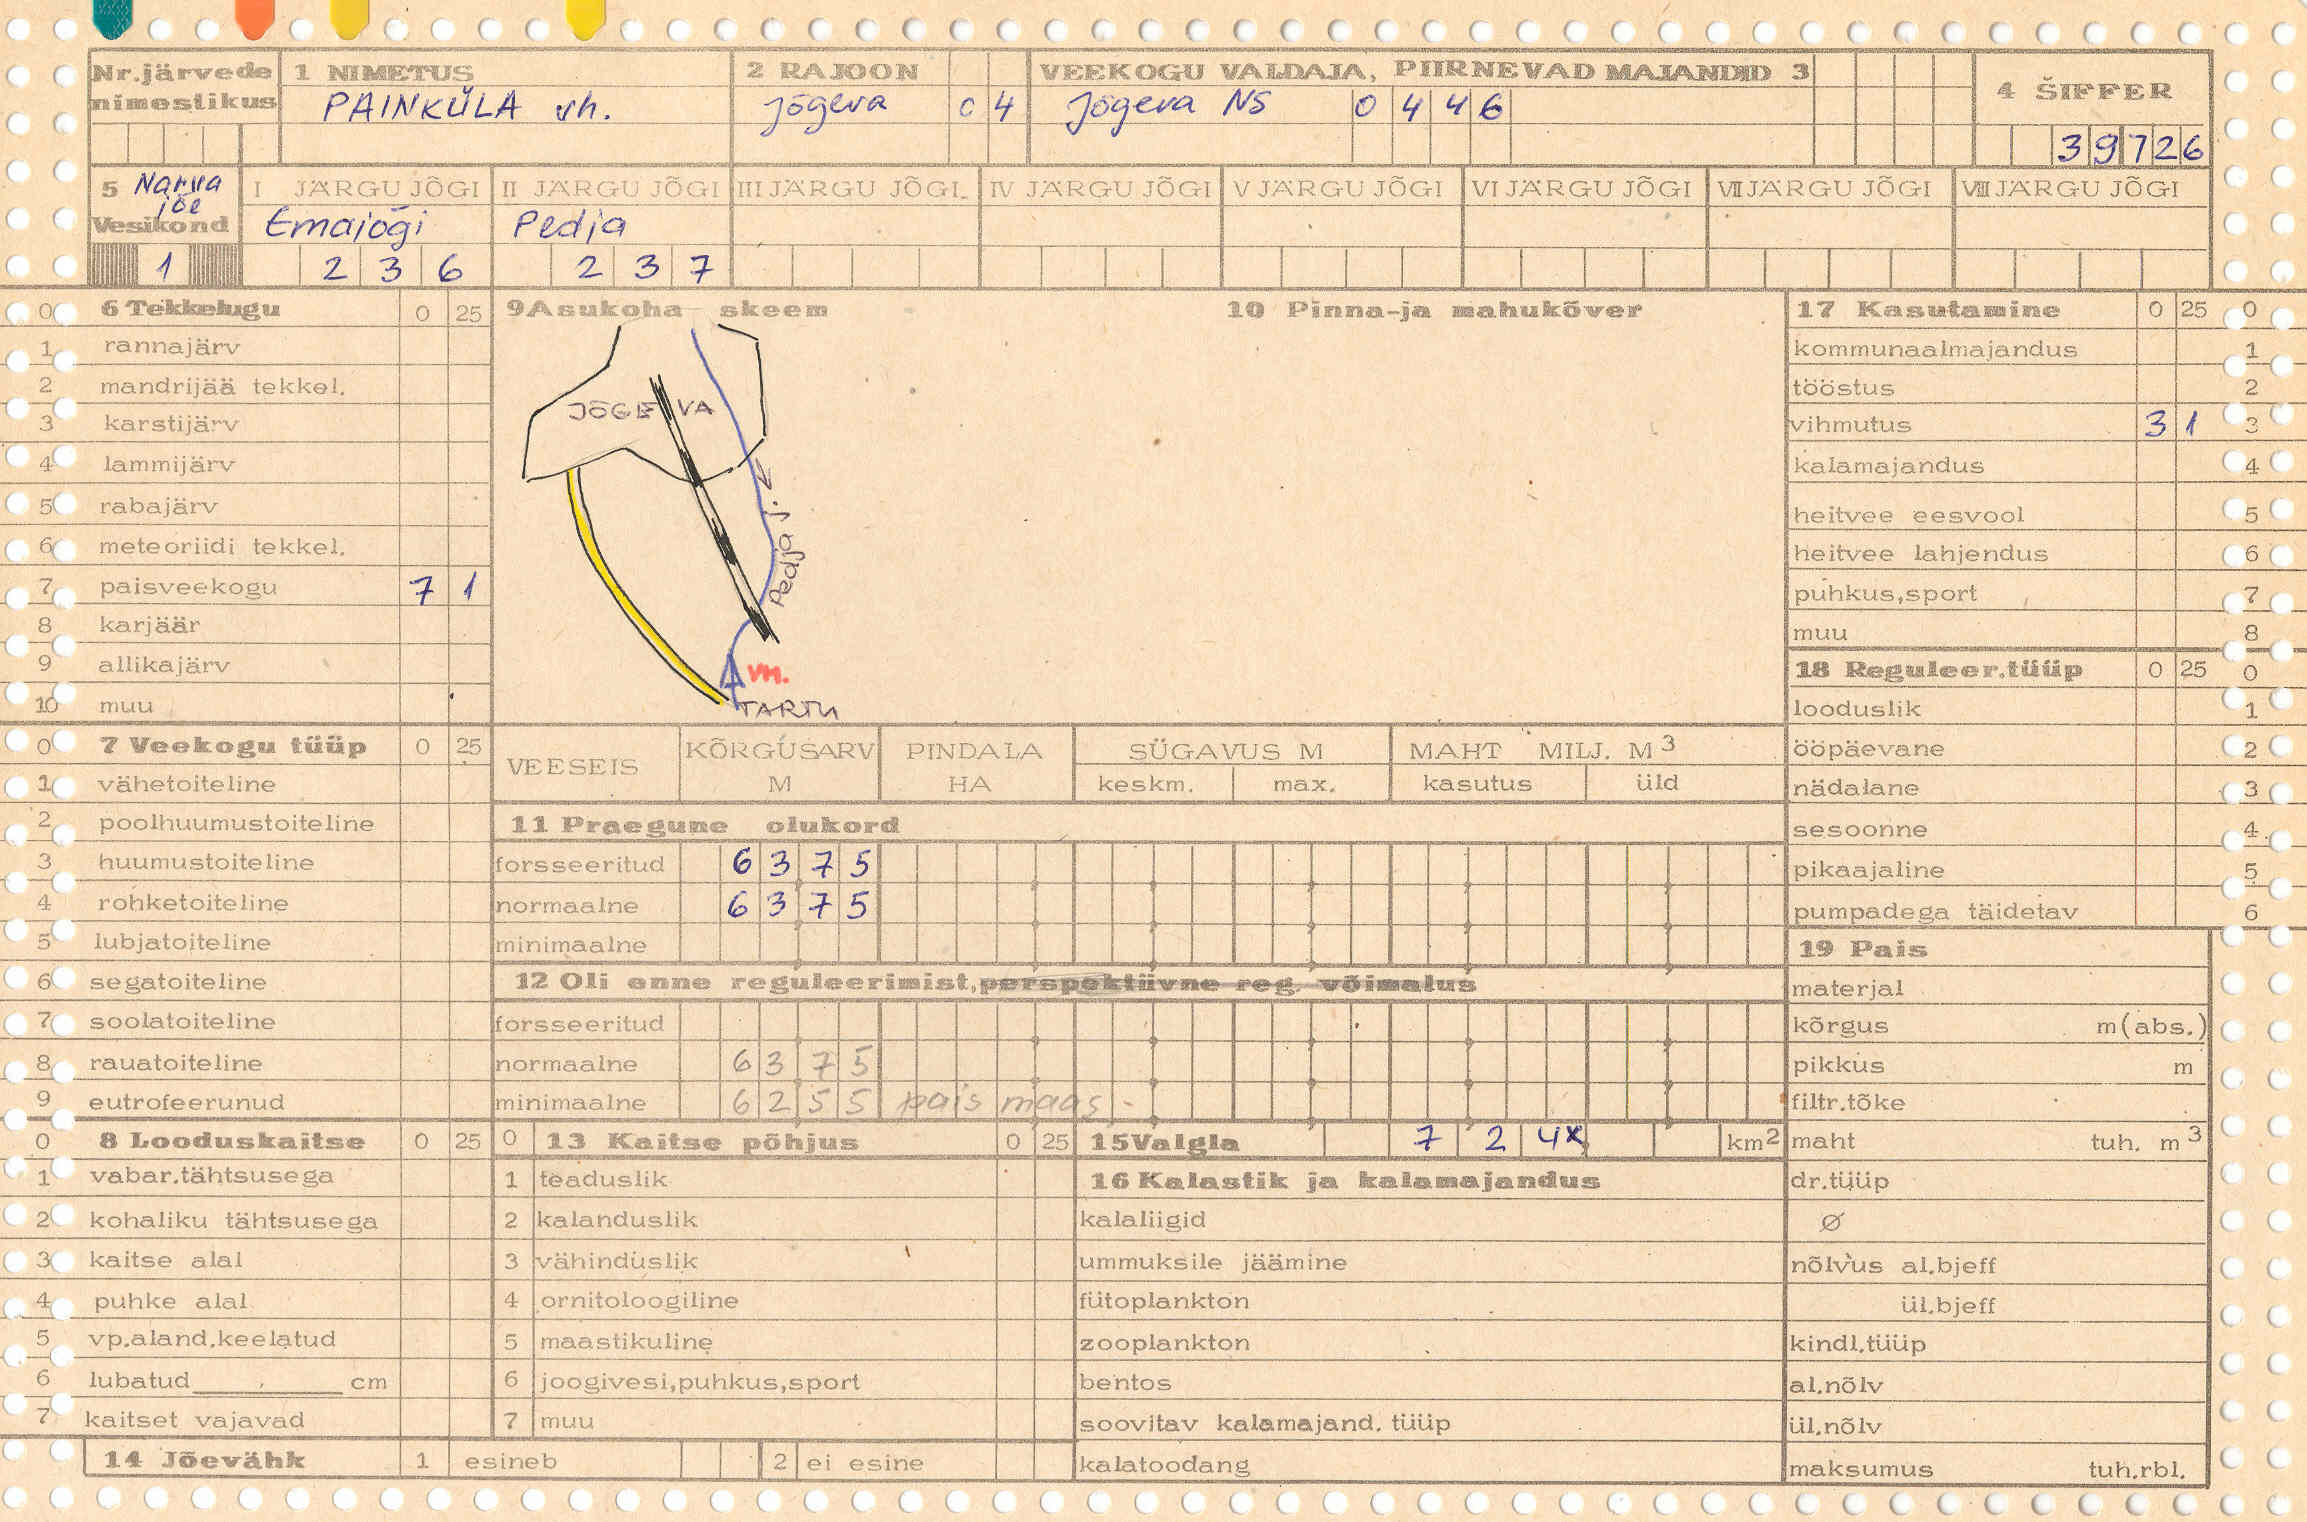 Nr.järvede nimestikus 1 NIMETUS 2 RAJOON VEEKOGU VALDAJA, PIIRNEVAD MAJANDID 3 4 ŠIFFER
PAINKÜLA vh. Jõgeva 0 4 Jõgeva NS 0 4 4 6
3 9 7 2 6
5 Narva jõe Vesikond I JÄRGU JÕGI II JÄRGU JÕGI III JÄRGU JÕGI IV JÄRGU JÕGI V JÄRGU JÕGI VI JÄRGU JÕGI VII JÄRGU JÕGI VIII JÄRGU JÕGI
Emajõgi Pedja
1 2 3 6 2 3 7
0 6 Tekkelugu 0 25
1 rannajärv
2 mandrijää tekkel.
3 karstijärv
4 lammijärv
5 rabajärv
6 meteoriidi tekkel.
7 paisveekogu 7 1
8 karjäär
9 allikajärv
10 muu
0 7 Veekogu tüüp 0 25
1 vähetoiteline
2 poolhuumustoiteline
3 huumustoiteline
4 rohketoiteline
5 lubjatoiteline
6 segatoiteline
7 soolatoiteline
8 rauatoiteline
9 eutrofeerunud
0 8 Looduskaitse 0 25
1 vabar.tähtsusega
2 kohaliku tähtsusega
3 kaitse alal
4 puhke alal
5 vp.aland.keelatud
6 lubatud cm
7 kaitset vajavad
14 Jõevähk 1 esineb 2 ei esine
9 Asukoha skeem 10 Pinna-ja mahukõver
JÕGEVA
Pedja j.
vh.
TARTU
VEESEIS KÕRGUSARV M PINDALA HA SÜGAVUS M MAHT MILJ. M3
keskm. max. kasutus üld
11 Praegune olukord
forsseeritud 6 3 7 5
normaalne 6 3 7 5
minimaalne
12 Oli enne reguleerimist,perspektiivne reg. võimalus
forsseeritud
normaalne 6 3 7 5
minimaalne 6 2 5 5 pais maas
0 13 Kaitse põhjus 0 25
1 teaduslik
2 kalanduslik
3 vähinduslik
4 ornitoloogiline
5 maastikuline
6 joogivesi,puhkus,sport
7 muu
15 Valgla 7 2 4x km2
16 Kalastik ja kalamajandus
kalaliigid
ummuksile jäämine
fütoplankton
zooplankton
bentos
soovitav kalamajand. tüüp
kalatoodang
17 Kasutamine 0 25 0
kommunaalmajandus 1
tööstus 2
vihmutus 3 1 3
kalamajandus 4
heitvee eesvool 5
heitvee lahjendus 6
puhkus,sport 7
muu 8
18 Reguleer.tüüp 0 25 0
looduslik 1
ööpäevane 2
nädalane 3
sesoonne 4
pikaajaline 5
pumpadega täidetav 6
19 Pais
materjal
kõrgus m(abs.)
pikkus m
filtr.tõke
maht tuh. m3
dr.tüüp
Ø
nõlvus al.bjeff
ül.bjeff
kindl.tüüp
al.nõlv
ül.nõlv
maksumus tuh.rbl.